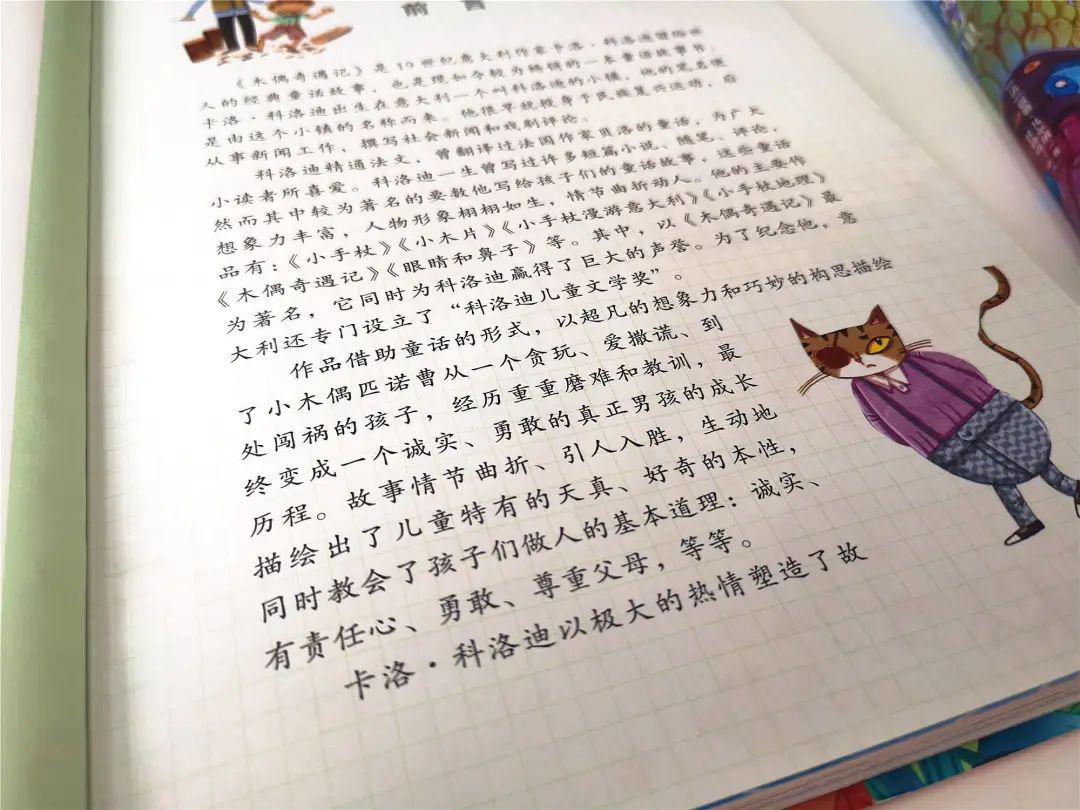 前言
《木偶奇遇记》是19世纪意大利作家卡洛·科洛迪留给世
人的经典童话故事，也是现如今较为畅销的一本童话故事书。
卡洛·科洛迪出生在意大利一个叫科洛迪的小镇，他的笔名便
是由这个小镇的名称而来。他很早就投身于民族复兴运动，后
从事新闻工作，撰写社会新闻和戏剧评论。
科洛迪精通法文，曾翻译过法国作家贝洛的童话，为广大
小读者所喜爱。科洛迪一生曾写过许多短篇小说、随笔、评论，
然而其中较为著名的要数他写给孩子们的童话故事，这些童话
想象力丰富，人物形象栩栩如生，情节曲折动人。他的主要作
品有：《小手杖》《小木片》《小手杖漫游意大利》《小手杖地理》
《木偶奇遇记》《眼睛和鼻子》等。其中，以《木偶奇遇记》最
为著名，它同时为科洛迪赢得了巨大的声誉。为了纪念他，意
大利还专门设立了“科洛迪儿童文学奖”。
作品借助童话的形式，以超凡的想象力和巧妙的构思描绘
了小木偶匹诺曹从一个贪玩、爱撒谎、到
处闯祸的孩子，经历重重磨难和教训，最
终变成一个诚实、勇敢的真正男孩的成长
历程。故事情节曲折、引人入胜，生动地
描绘出了儿童特有的天真、好奇的本性，
同时教会了孩子们做人的基本道理：诚实、
有责任心、勇敢、尊重父母，等等。
卡洛·科洛迪以极大的热情塑造了故